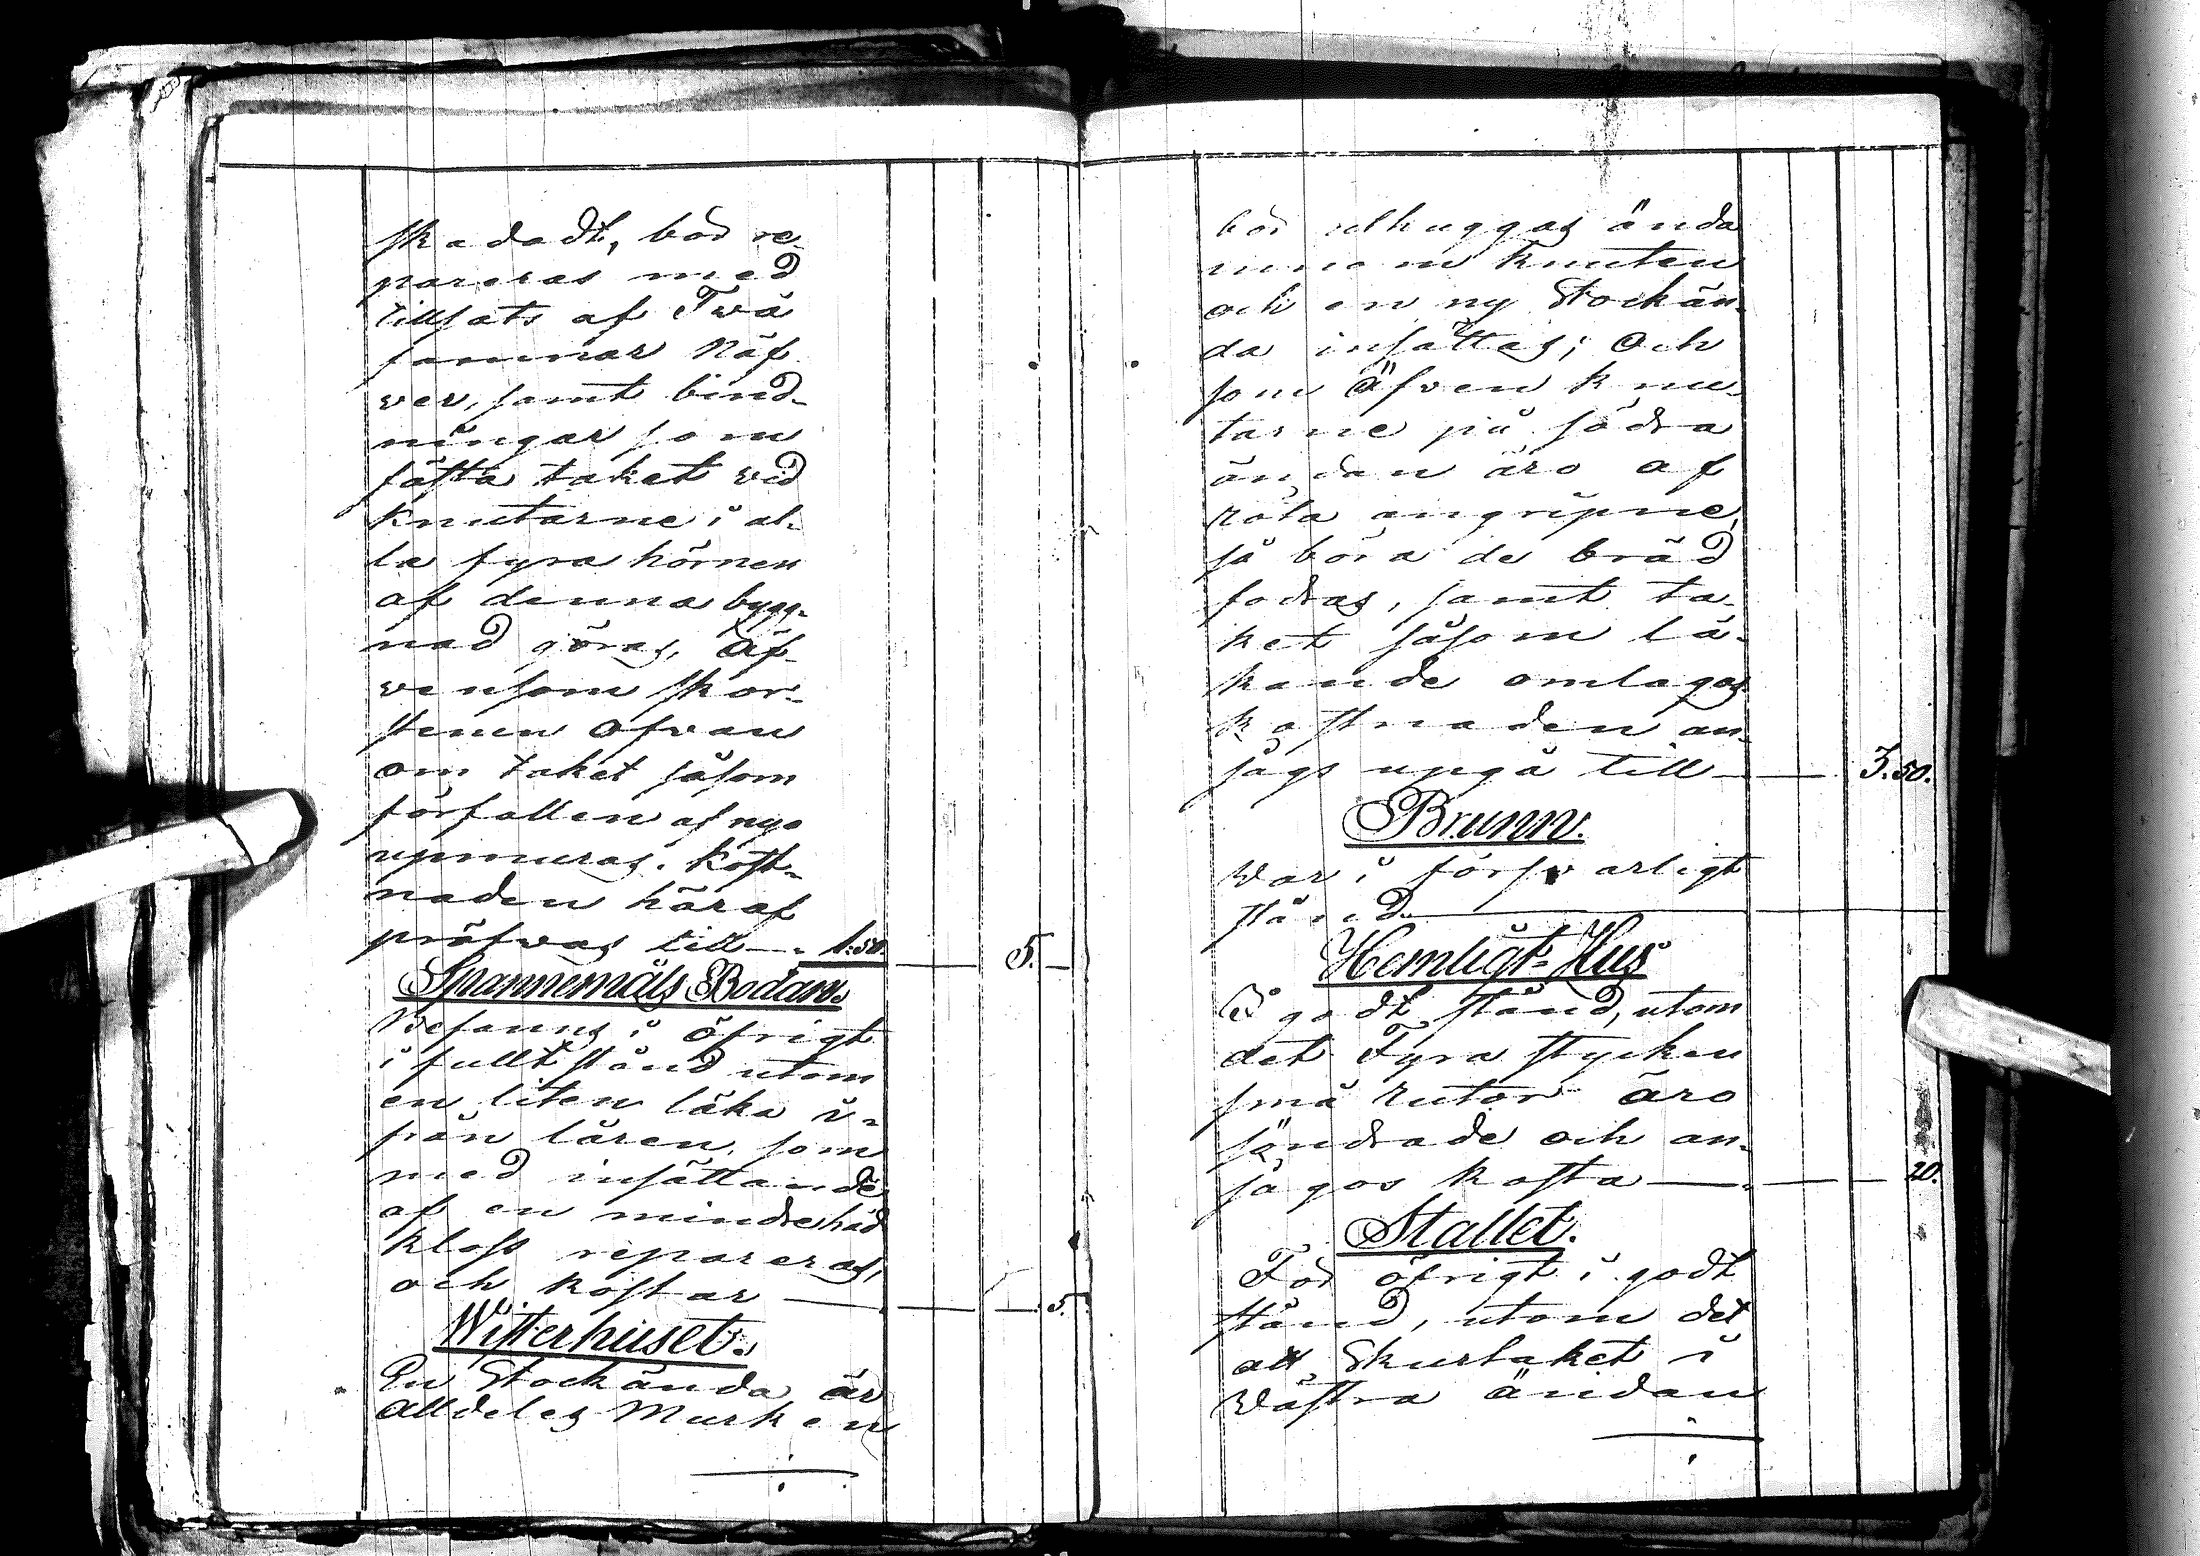 skadadt, bör re-
pareras med
tillsats af Twå
famnar Näf
wer, samt bind-
ningar som
fästa taket vid
Knutarne i al-
la fyra hörnen
af denna bygg-
nad göras, Äf-
vensom skor-
stenen ofvan
om taket såsom
förfallen af nyo
upmuras. Kost-
naden häraf
pröfvas till 1.50. 5.
Spannemåls Bodan.
Befanns i öfrigt
i fullt stånd utom
en liten läka i-
från låren, som
med insättande
af en mindre
kloss repareras,
och kostar 5.
Wisterhuset.
En Stockända är
alldeles Murken
bör uthuggas ända
innom Knuten
och en ny Stockän-
da insättas; Och
som Äfven knu-
tarne på södra
ändan äro af
röta angripne,
så böra de bräd
fodras, samt ta-
ket såsom lä-
kande omlagas
kostnaden an-
sågs upgå till 3.50.
Brunn.
War i försvarligt
stånd
Hemligt-Hus
I godt stånd, utom
det Fyra stycken
små rutor äro
söndrade och an-
sågos kosta 20.
Stallet.
För öfrigt i godt
stånd, utom det
att Skurtaket i
Wästra ändan